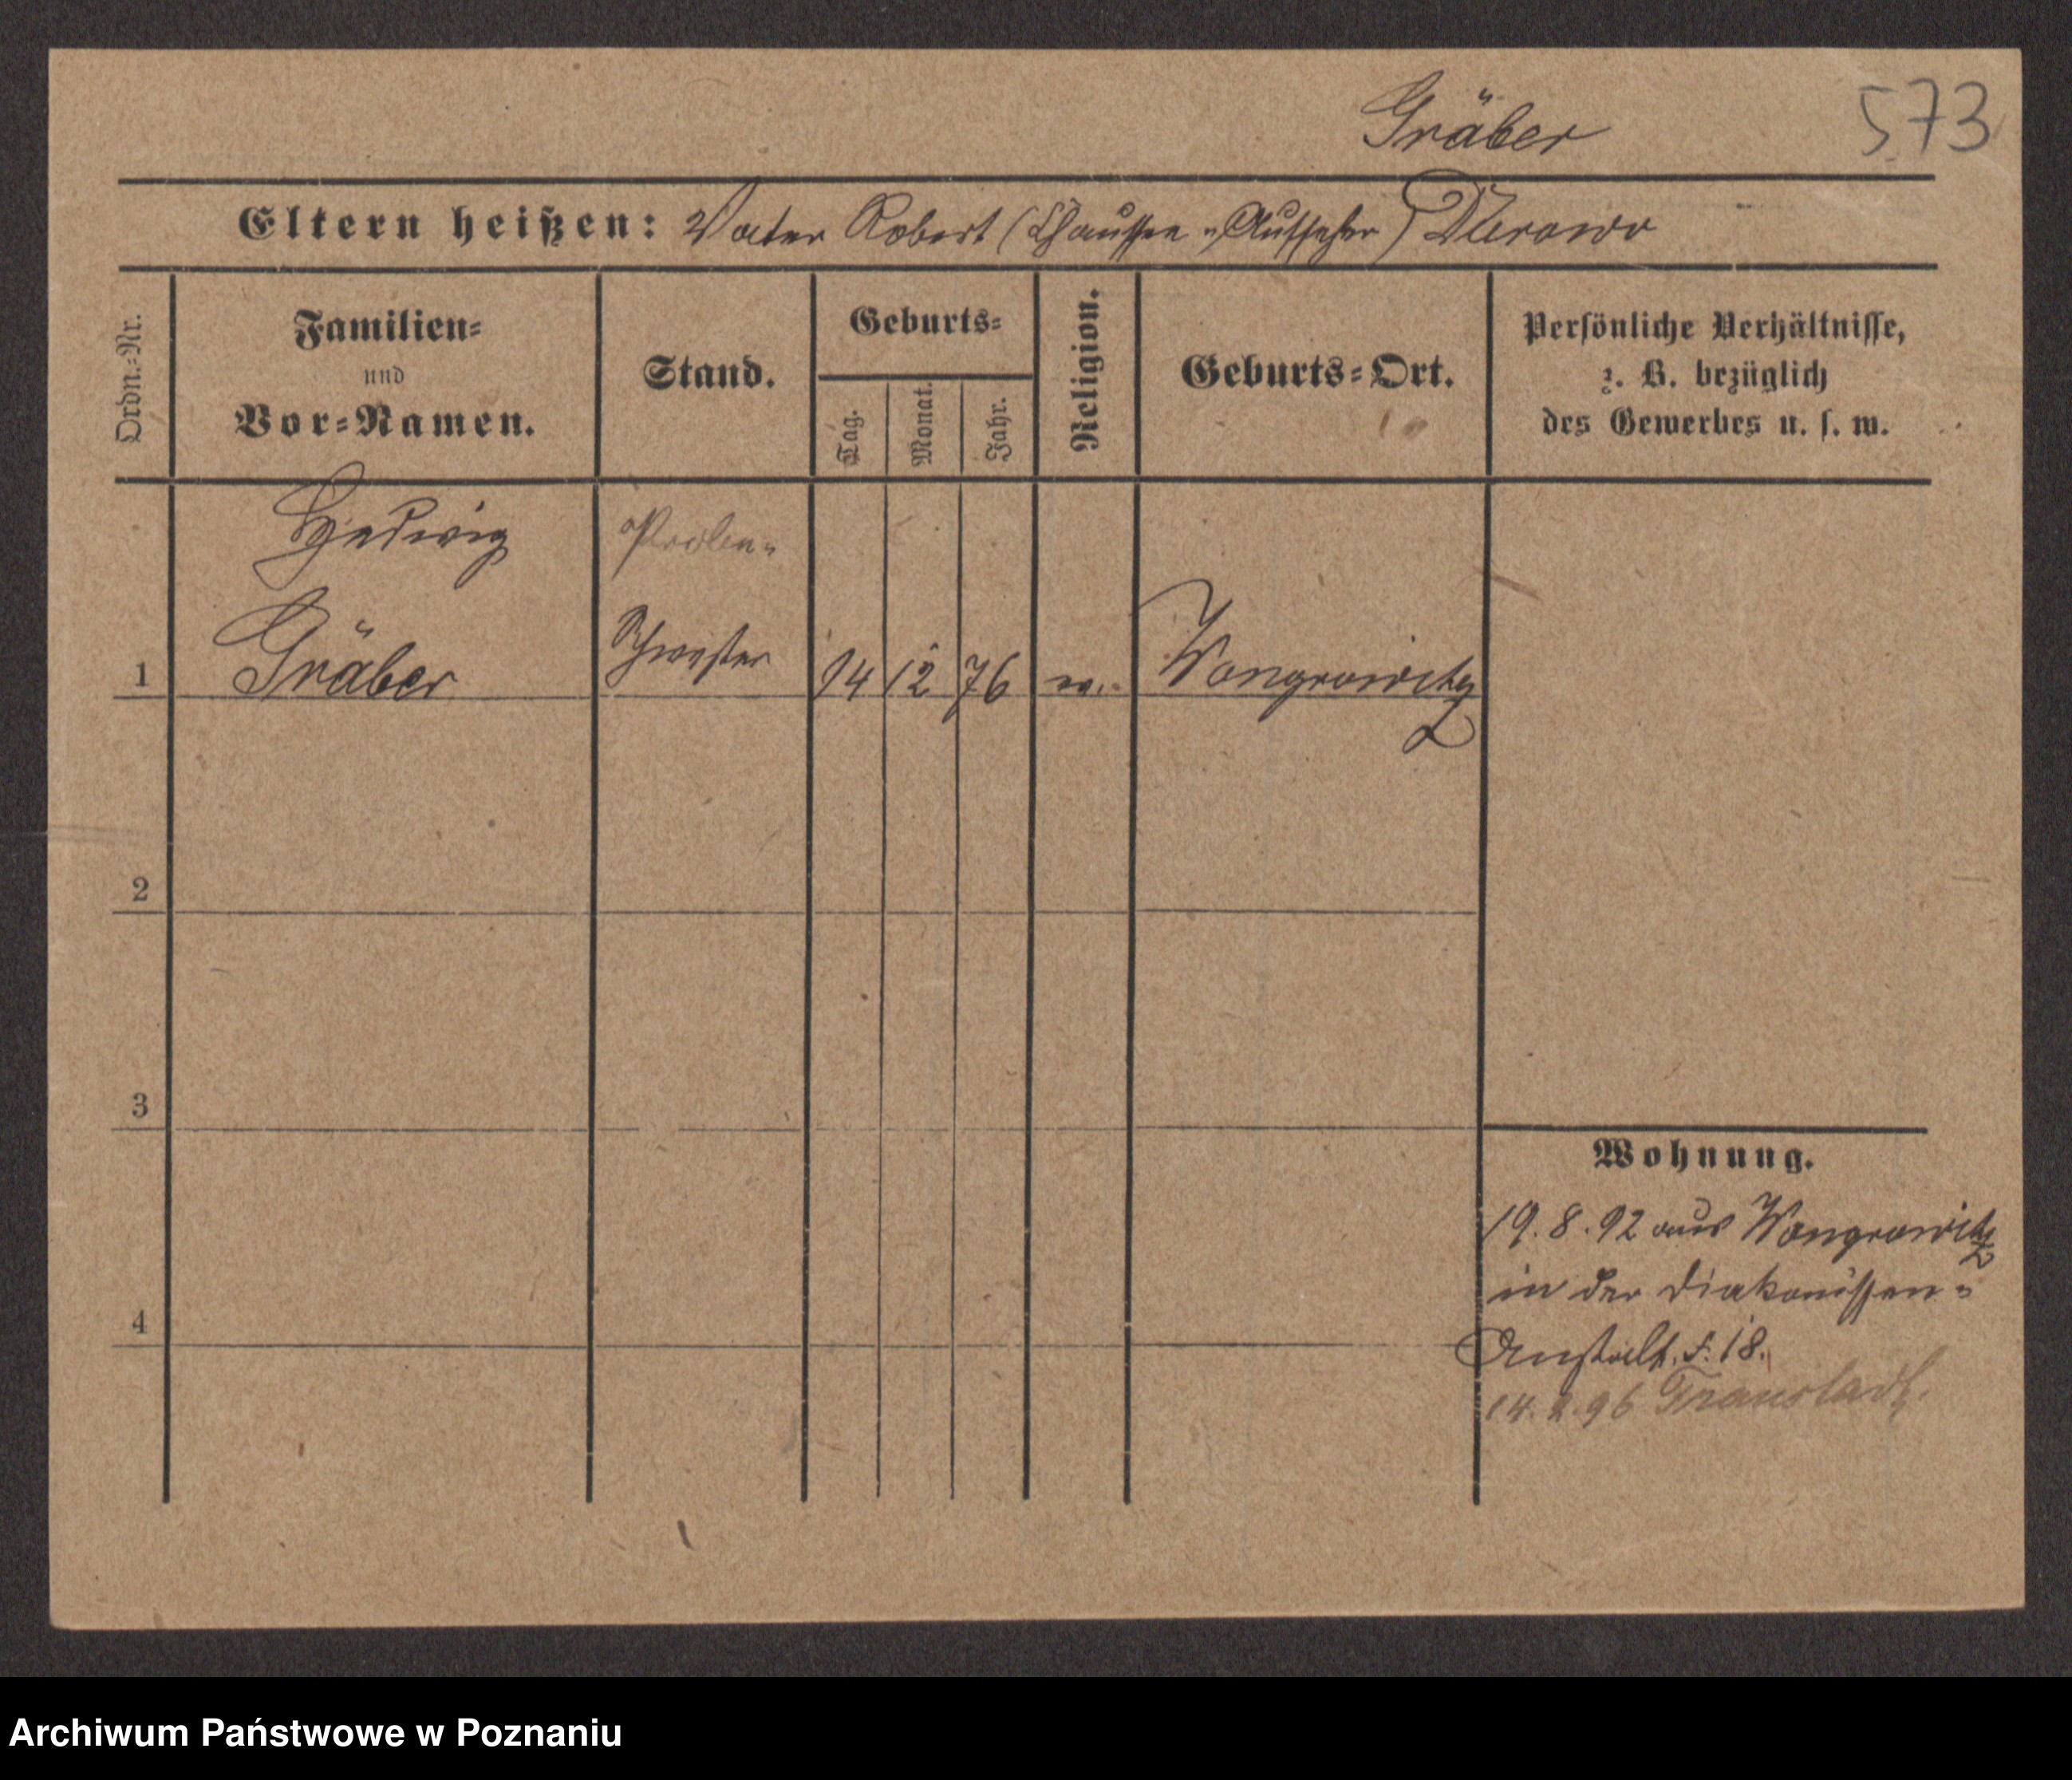 Gräber 573
Eltern heißen: Vater Robert (Chaussee-Aufseher) Durowo
Ordn.-Nr.
Familien-
und
Vor-Namen.
Stand.
Geburts-
Tag.
Monat.
Jahr.
Religion.
Geburts-Ort.
Persönliche Verhältnisse,
z. B. bezüglich
des Gewerbes u. s. w.
Hedwig
Proben-
1 Gräber Schwester 14 12 76 Wongrowitz
2
3
4
Wohnung.
19.8.92 aus Wongrowitz
in der Diakonissen-
Anstalt. 18.
14.2.96 Fraustadt.
Archiwum Państwowe w Poznaniu